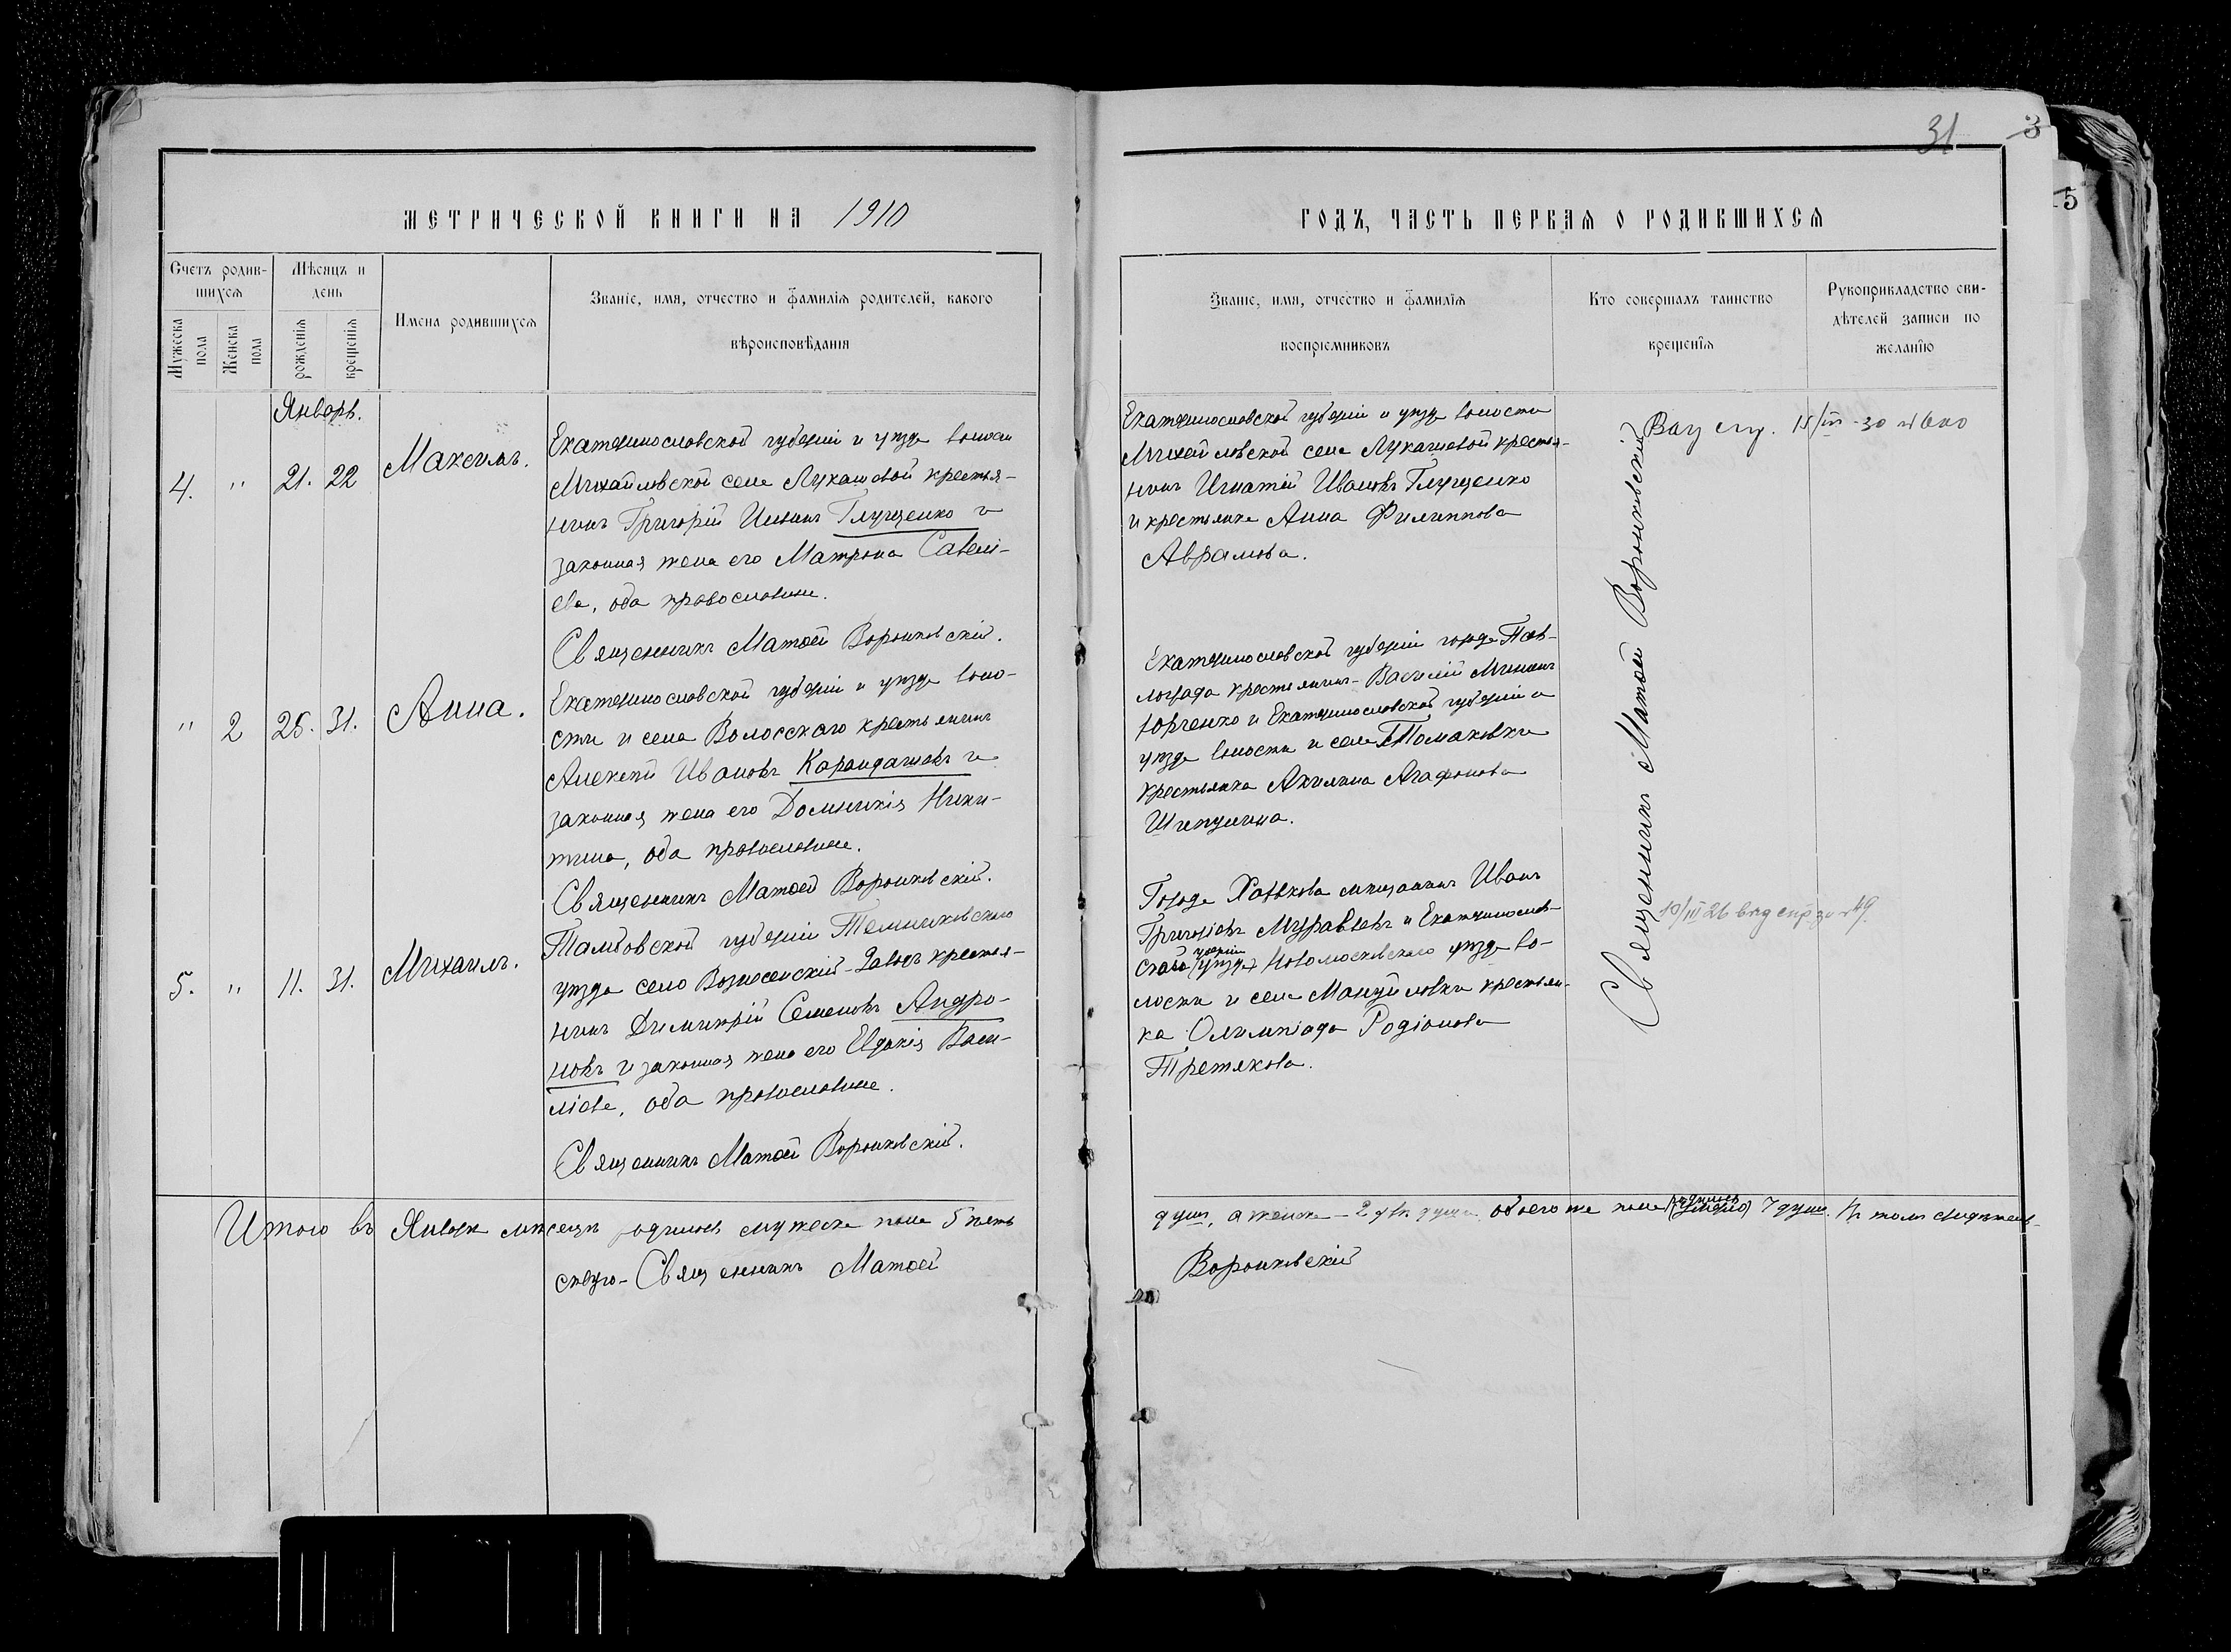 31
3
5
МЕТРИЧЕСКОЙ КНИГИ НА 1910
ГОДЪ, ЧАСТЬ ПЕРВАЯ О РОДИВШИХСЯ
Счетъ родив-
шихся
Мужеска пола
Женска пола
Мѣсяцъ и
день
рожденія
крещенія
Имена родившихся
Званіе, имя, отчество и фамилія родителей, какого
вѣроисповѣданія
Званіе, имя, отчество и фамилія
воспріемниковъ
Кто совершалъ таинство
крещенія
Рукоприкладство сви-
дѣтелей записи по
желанію
Январь.
4. " 21. 22 Максимъ.
Екатеринославской губерніи и уѣзда волости
Михайловской села Лукашовой крестья-
нинъ Григорій Глущенко и
законная жена его Матрона Савели-
ева, оба православные.
Священникъ Матѳей Воронковскій.
Екатеринославской губерніи и уѣзда волости
Михайловской села Лукашевой крестья-
нинъ Игнатій Ивановъ Глущенко
и крестьянка Анна Филиппова
Аврамова.
" 2 25. 31. Анна.
Екатеринославской губерніи и уѣзда воло-
сти и села Волосского крестьянинъ
Алексѣй Ивановъ Карандашовъ и
законная жена его Домникія Ники-
тина, оба православные.
Священникъ Матѳей Воронковскій.
Екатеринославской губерніи города Пав-
лограда крестьянинъ Василій Мининъ
Юрченко и Екатеринославской губерніи и
уѣзда волости и села Томаковки
крестьянка Акилина Агафонова
Шипулина.
5. " 11. 31. Михаилъ.
Тамбовской губерніи Темниковского
уѣзда село Вознесенскій-Заводъ крестья-
нинъ Димитрій Семеновъ Андро-
новъ и законная жена его Евдокія Васи-
ліева, оба православные.
Священникъ Матѳей Воронковскій.
Города Харькова мѣщанинъ Иванъ
Григоріевъ Муравьевъ и Екатеринослав-
ской губерніи (уѣзда) Новомосковскаго уѣзда во-
лости и села Мануйловки крестьян-
ка Олимпіада Родіонова
Третякова.
Священникъ Матѳей Воронковскій
15/III-30
10/III 26 выд
Итого въ Январѣ мѣсяцѣ родилось мужеска пола 5 пять
душъ, а женска - 2 двѣ души, обоего же пола родилось 7 душъ. Въ томъ свидѣтель-
ствую - Священникъ Матѳей
Воронковскій